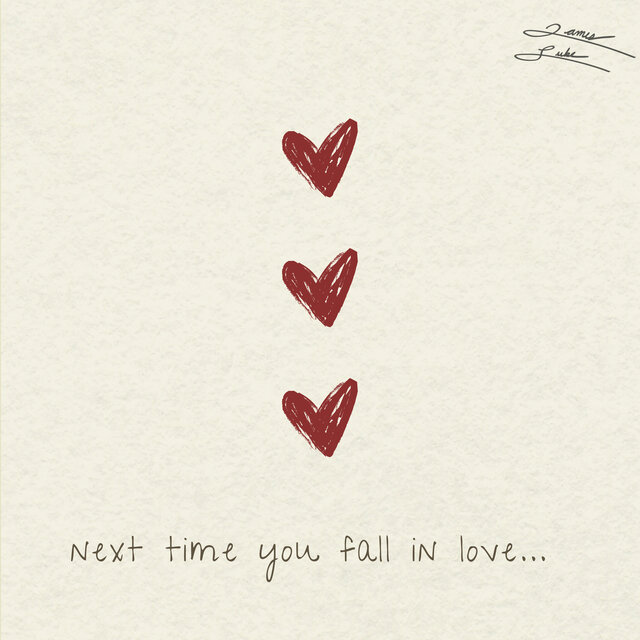 James
Luke
Next time you fall in love...